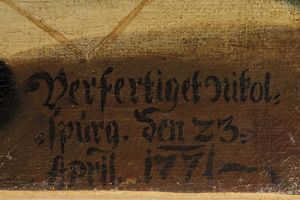 Verfertiget Nikol=
=spurg. den 23.
April. 1771